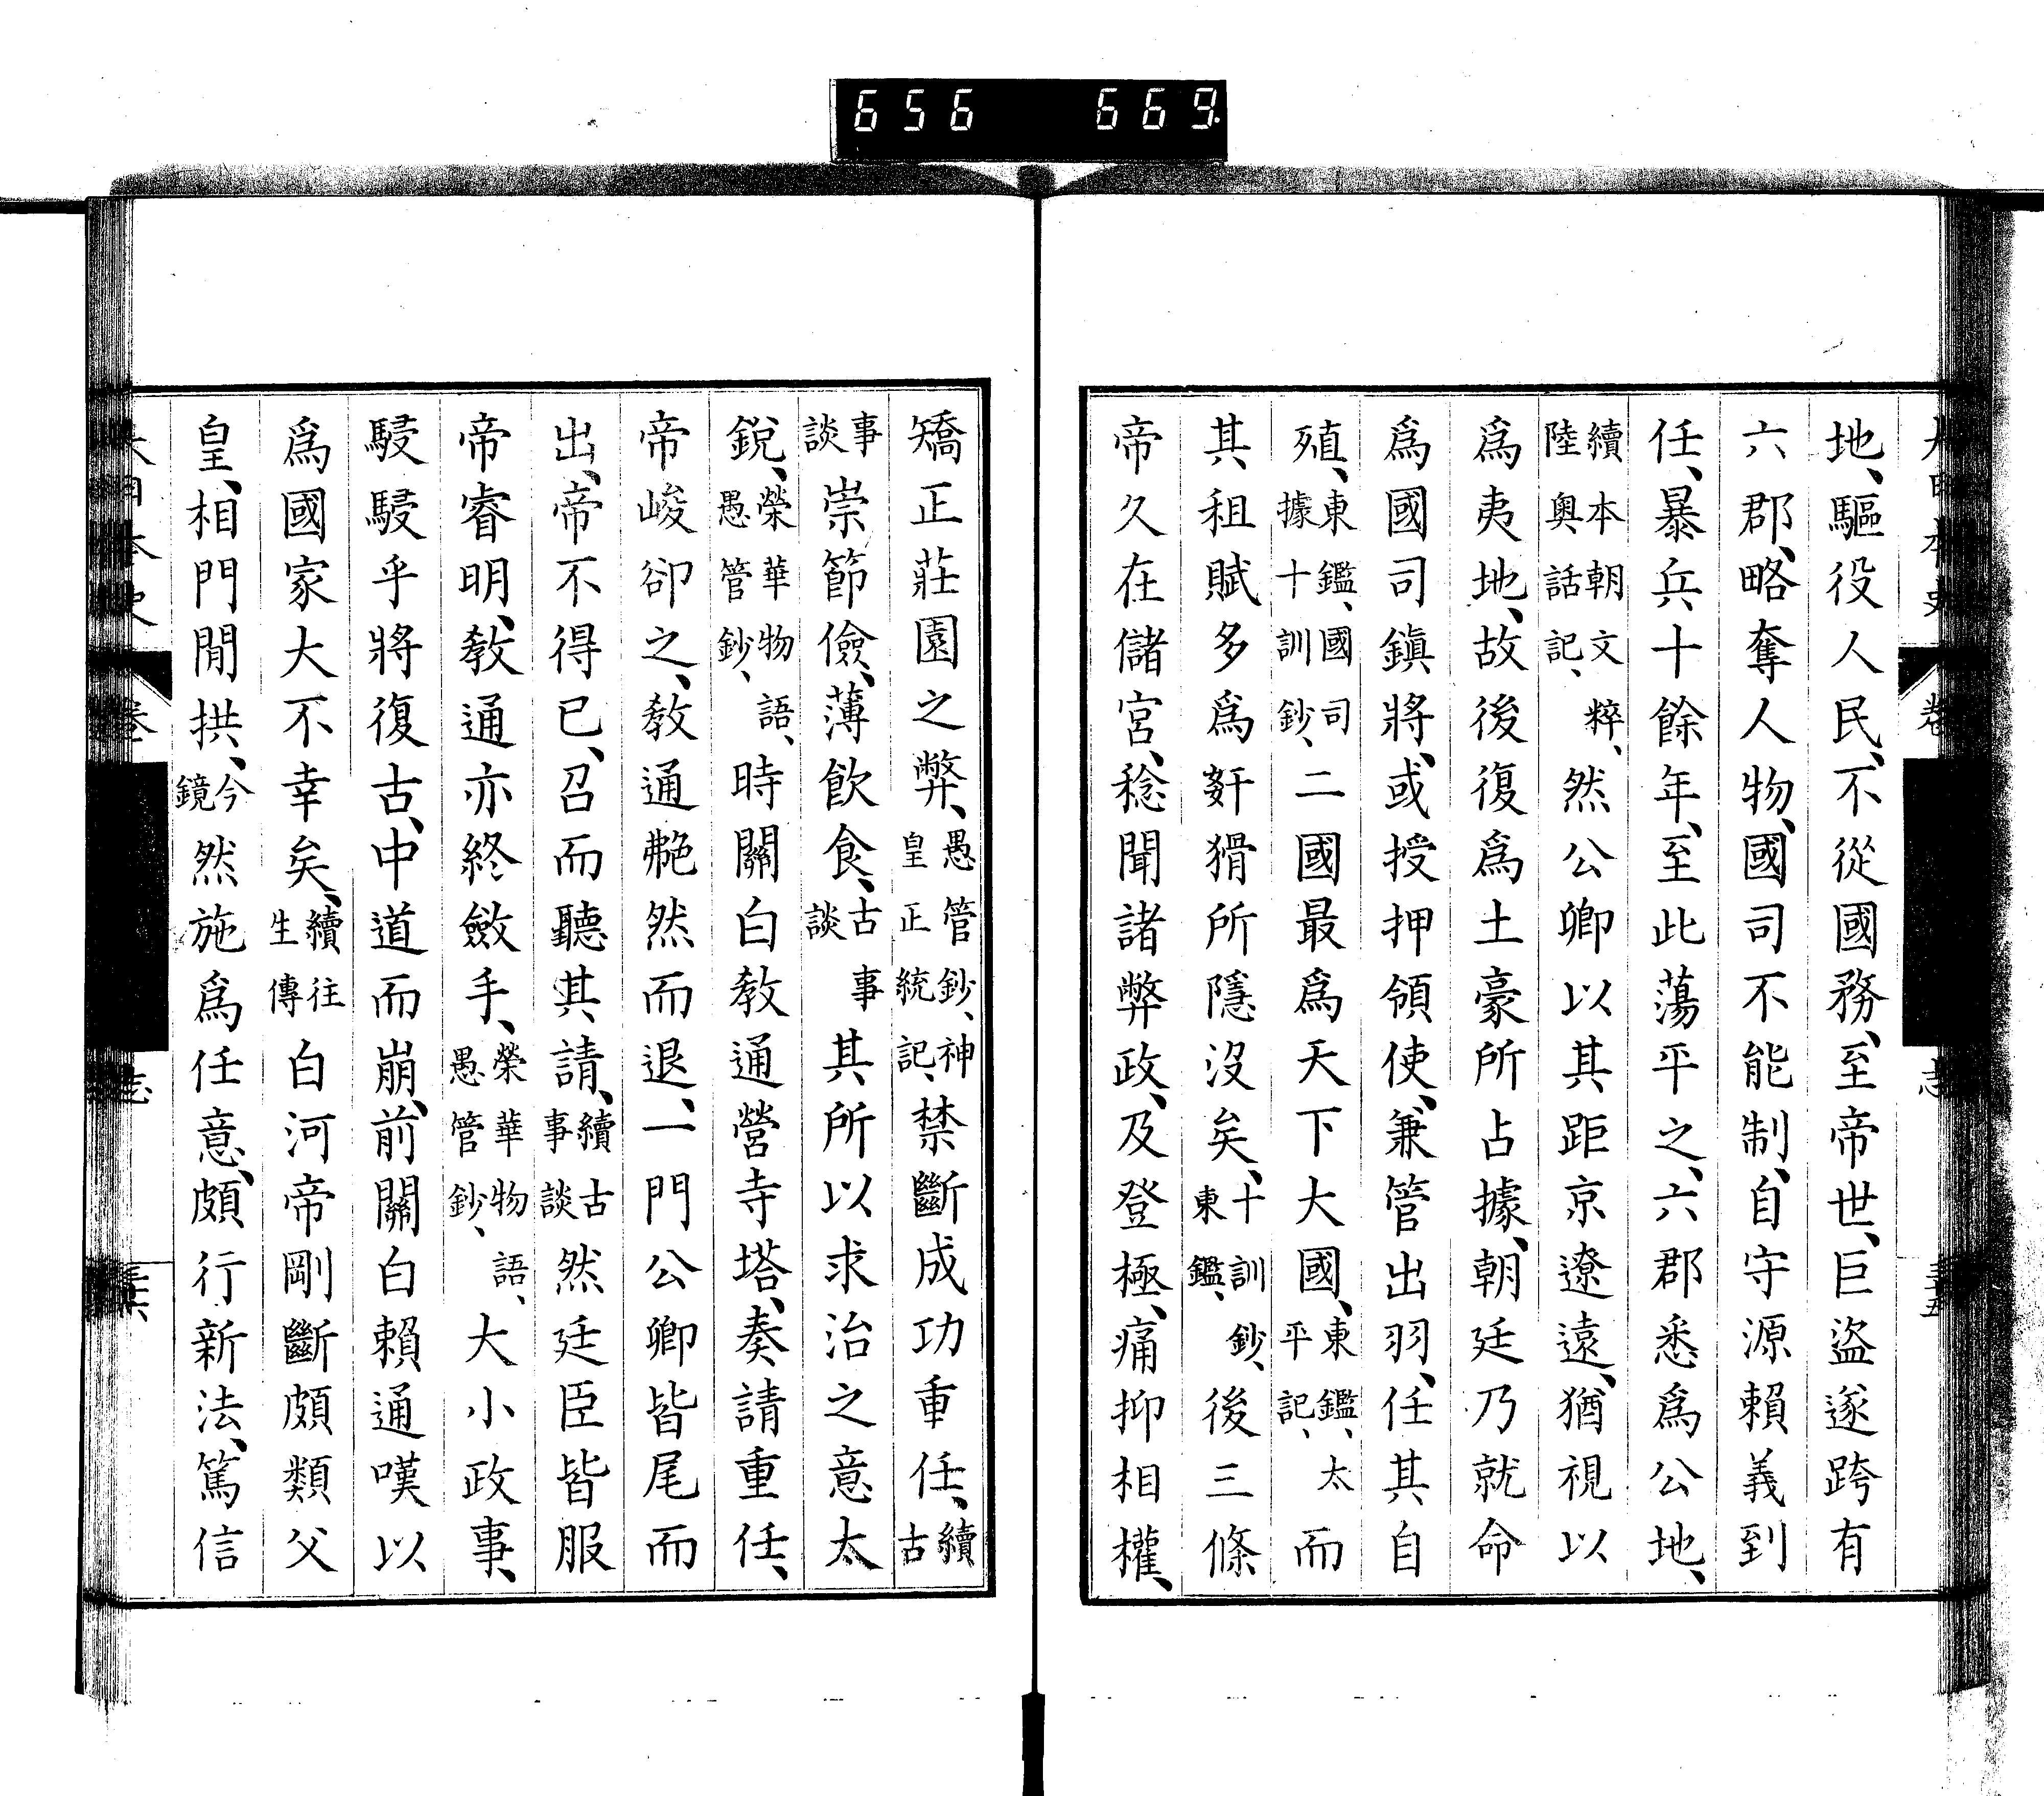 656 669
地、驅役人民、不從國務、至帝世、巨盜遂跨有
六郡、略奪人物、國司不能制、自守源賴義到
任、暴兵十餘年、至此蕩平之、六郡悉爲公地、
續本朝文粹、陸奧話記、然公卿以其距京遼遠、猶視以
爲夷地、故後復爲土豪所占據、朝廷乃就命
爲國司鎭將、或授押領使、兼管出羽、任其自
殖、東鑑、國司據十訓鈔、二國最爲天下大國、東鑑、太平記、而
其租賦多爲姧猾所隱沒矣、十訓鈔、東鑑、後三條
帝久在儲宮、稔聞諸弊政、及登極、痛抑相權、
矯正莊園之弊、愚管鈔、神皇正統記、禁斷成功重任、續古
事談崇節儉、薄飮食、古事談其所以求治之意太
銳、榮華物語、愚管鈔、時關白敎通營寺塔、奏請重任、
帝峻卻之、敎通艴然而退、一門公卿皆尾而
出、帝不得已、召而聽其請、續古事談然廷臣皆服
帝睿明、敎通亦終斂手、榮華物語、愚管鈔、大小政事、
駸駸乎將復古、中道而崩、前關白賴通嘆以
爲國家大不幸矣、續往生傳白河帝剛斷頗類父
皇、相門閒拱、今鏡然施爲任意、頗行新法、篤信